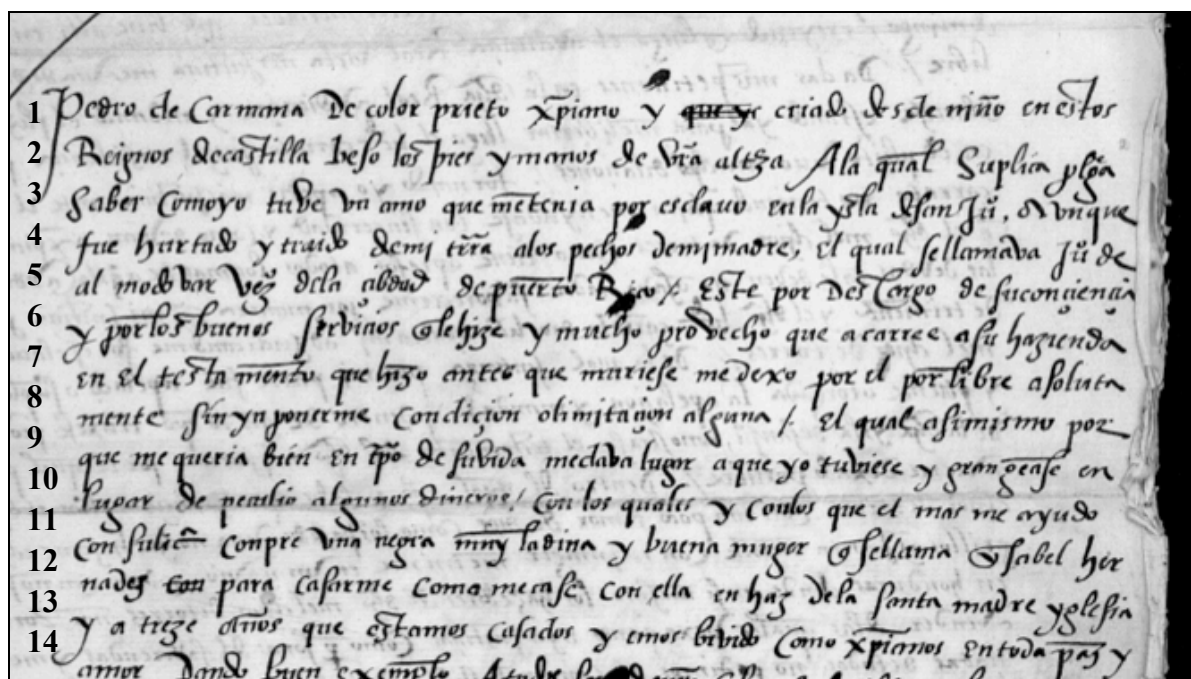 1 Pedro de Carmona De color prieto xpiano y criado desde niño en estos
2 Reignos de castilla beso los pies y manos de vra alteza A la qual Suplica plega
3 Saber Como yo tuve vn amo que me tenia por esclavo en la ysla de san Juº, avnque
4 fue hurtado y traido de mi trra a los pechos de mi madre, El qual se llamava Juº de
5 al modovar vezº de la cibdad de puerto Rico / Este por Des Cargo de su conciencia
6 y por los buenos servicios q le hize y mucho provecho que acarree a su hazienda
7 en El testamento que hizo antes que muriese me dexo por el por libre asoluta
8 mente sin ynponerme Condiçion o limitaçion alguna / El qual asimismo por
9 que me queria bien En tpo de su vida me dava lugar a que yo tuviese y grangease en
10 lugar de peculio algunos dineros / Con los quales y con los que el mas me ayudo
11 con su licª conpre vna negra muy ladina y buena muger q se llama Ysabel her
12 nades con para Casarme Como me case Con ella en haz de la santa madre yglesia
13 Y a treze años que estamos Casados y emos bivido Como xpianos En toda paz y
14 amor Dando buen exemplo A todos